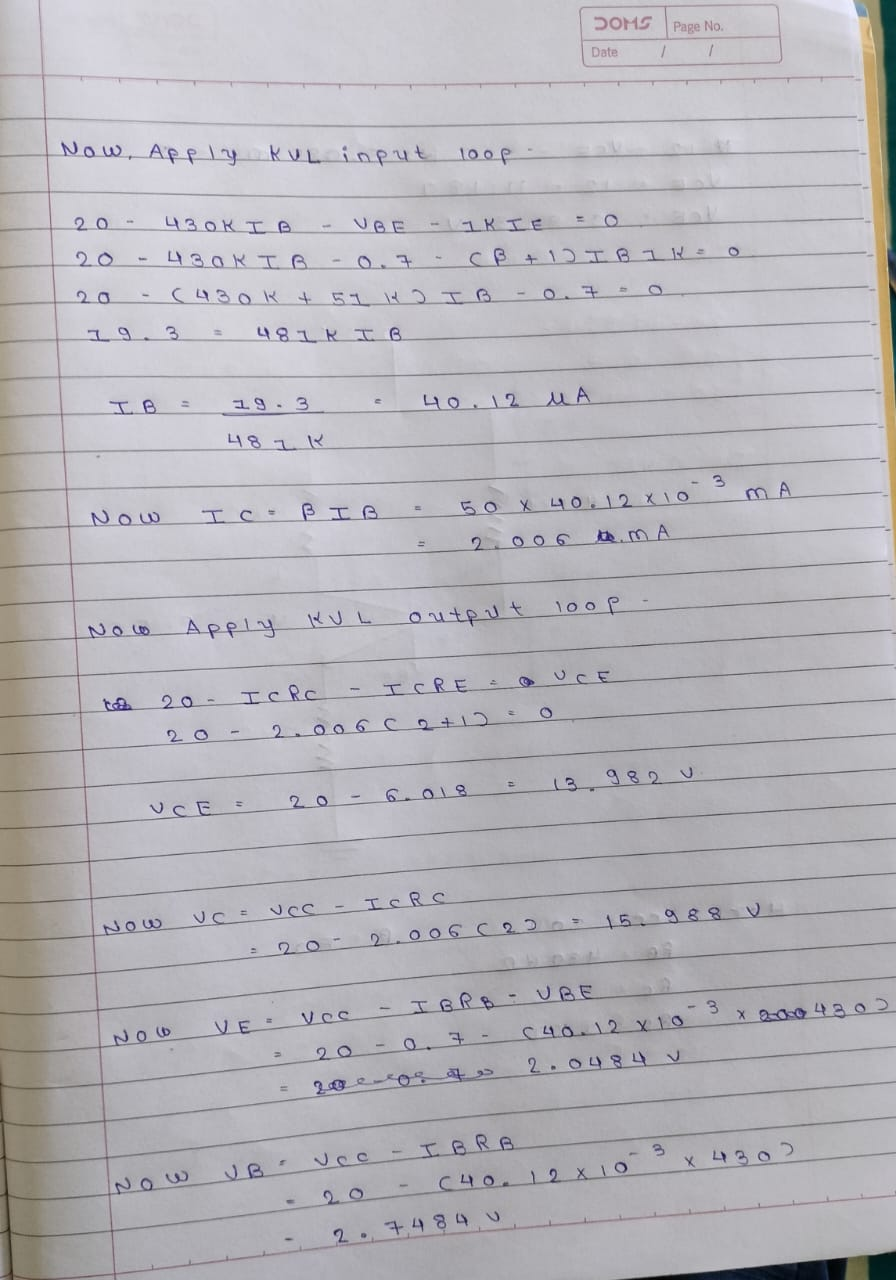 DOMS Page No.
Date / /
Now, Apply KVL input loop.
20 - 430K IB - VBE - 1K IE = 0
20 - 430K IB - 0.7 - (β + 1) IB 1K = 0
20 - (430K + 51K) IB - 0.7 = 0
19.3 = 481K IB
IB = 19.3 = 40.12 μA
481K
Now IC = βIB = 50 x 40.12 x 10⁻³ mA
= 2.006 mA
Now Apply KVL output loop.
20 - ICRC - ICRE = VCE
20 - 2.006 (2+1) = 0
VCE = 20 - 6.018 = 13.982 V.
Now VC = VCC - ICRC
= 20 - 2.006 (2) = 15.988 V
Now VE = VCC - IBRB - VBE
= 20 - 0.7 - (40.12 x 10⁻³ x 430)
= 2.0484 V
Now VB = VCC - IBRB
= 20 - (40.12 x 10⁻³ x 430)
= 2.7484 V